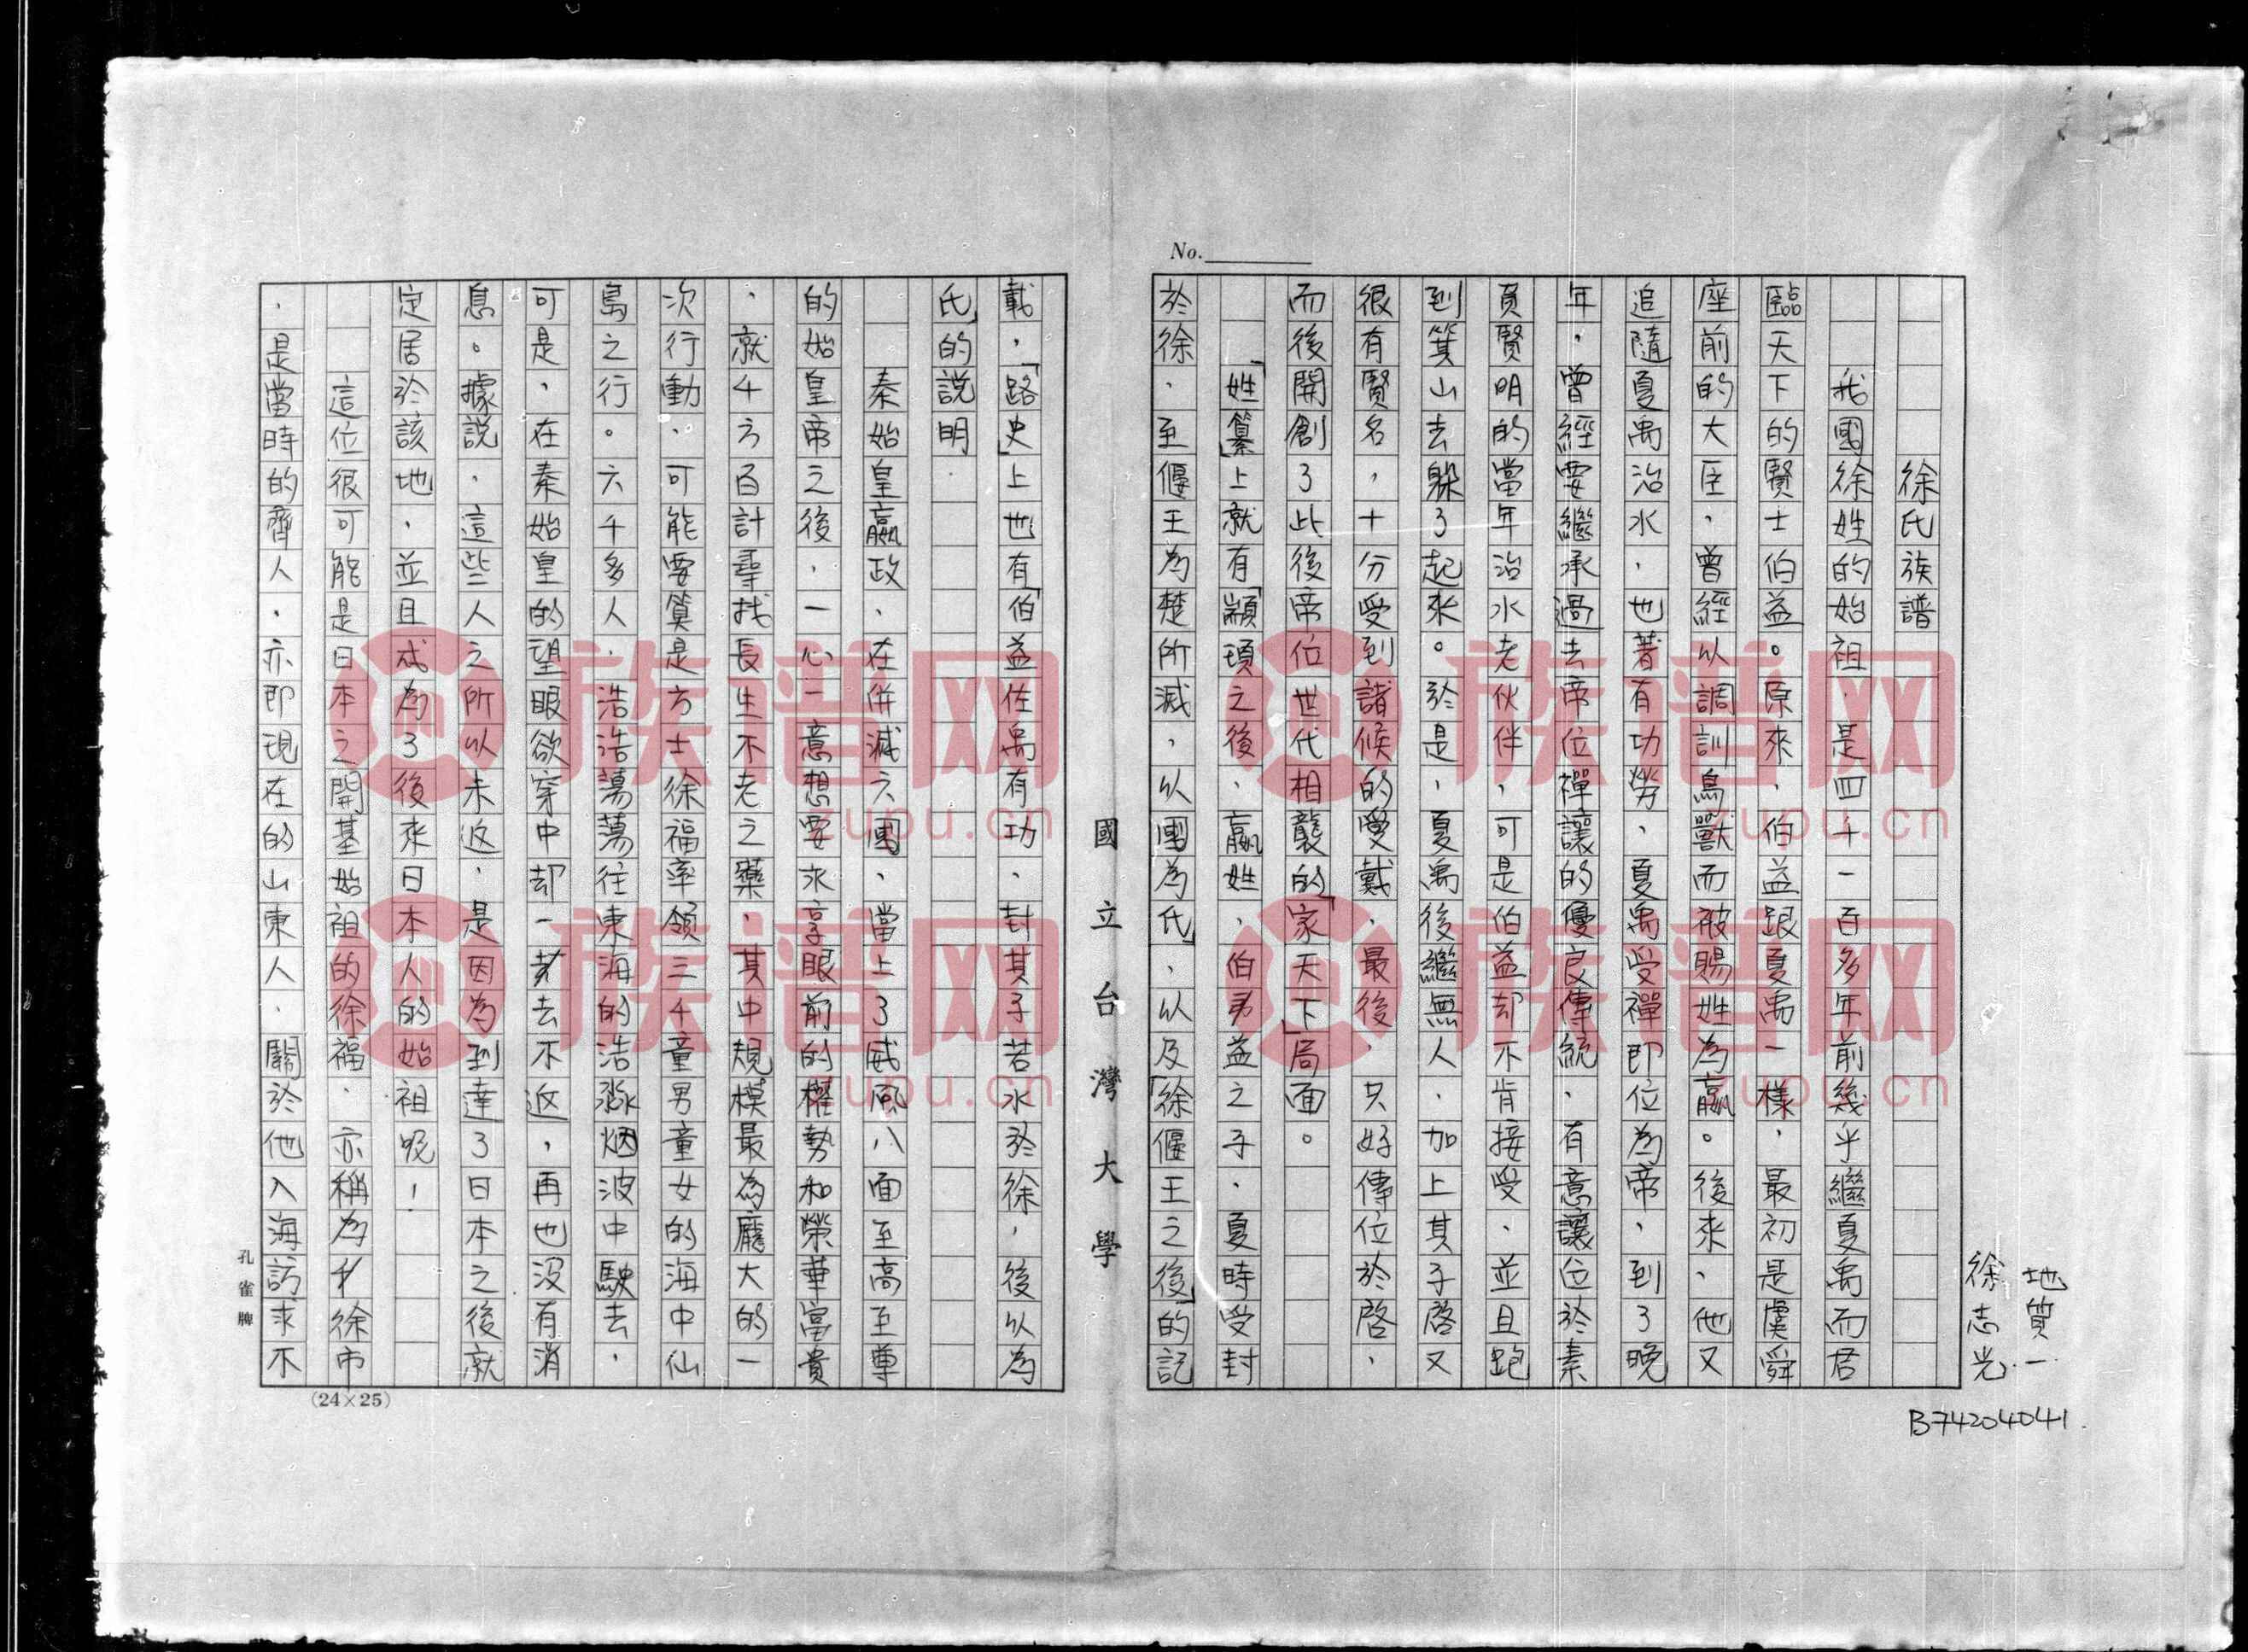 地質一
徐志光
B74204041
No.
徐氏族譜
我國徐姓的始祖,是四千一百多年前幾乎繼夏禹而君
臨天下的賢士伯益。原來,伯益跟夏禹一樣,最初是虞舜
座前的大臣,曾經以調訓鳥獸而被賜姓為嬴。後來,他又
追隨夏禹治水,也著有功勞,夏禹受禪即位為帝,到了晚
年,曾經要繼承過去帝位禪讓的優良傳統,有意讓位於素
負賢明的當年治水老伙伴,可是伯益却不肯接受,並且跑
到箕山去躲了起來。於是,夏禹後繼無人,加上其子啓又
很有賢名,十分受到諸候的愛戴,最後,只好傳位於啓,
而後開創了此後帝位世代相襲的「家天下」局面。
「姓纂」上就有「顓頊之後,嬴姓,伯益之子,夏時受封
於徐,至偃王為楚所滅,以國為氏」,以及「徐偃王之後」的記
國立台灣大學
載,「路史」上也有「伯益佐禹有功,封其子若水於徐,後以為
氏」的說明.
秦始皇嬴政,在併滅六國,當上了威風八面至高至尊
的始皇帝之後,一心一意想要永享眼前的權勢和榮華富貴
,就千方百計尋找長生不老之藥,其中規模最為龐大的一
次行動,可能要算是方士徐福率領三千童男童女的海中仙
島之行。六千多人,浩浩蕩蕩往東海的浩淼烟波中駛去,
可是,在秦始皇的望眼欲穿中却一去不返,再也没有消
息。據説,這些人之所以未返,是因為到達了日本之後就
定居於該地,並且成為了後來日本人的始祖呢!
這位很可能是日本之開基始祖的徐福,亦稱為徐市
,是當時的齊人,亦即現在的山東人,關於他入海訪求不
孔雀牌
(24×25)
族谱网
zupu.cn
族谱网
zupu.cn
族谱网
zupu.cn
族谱网
zupu.cn